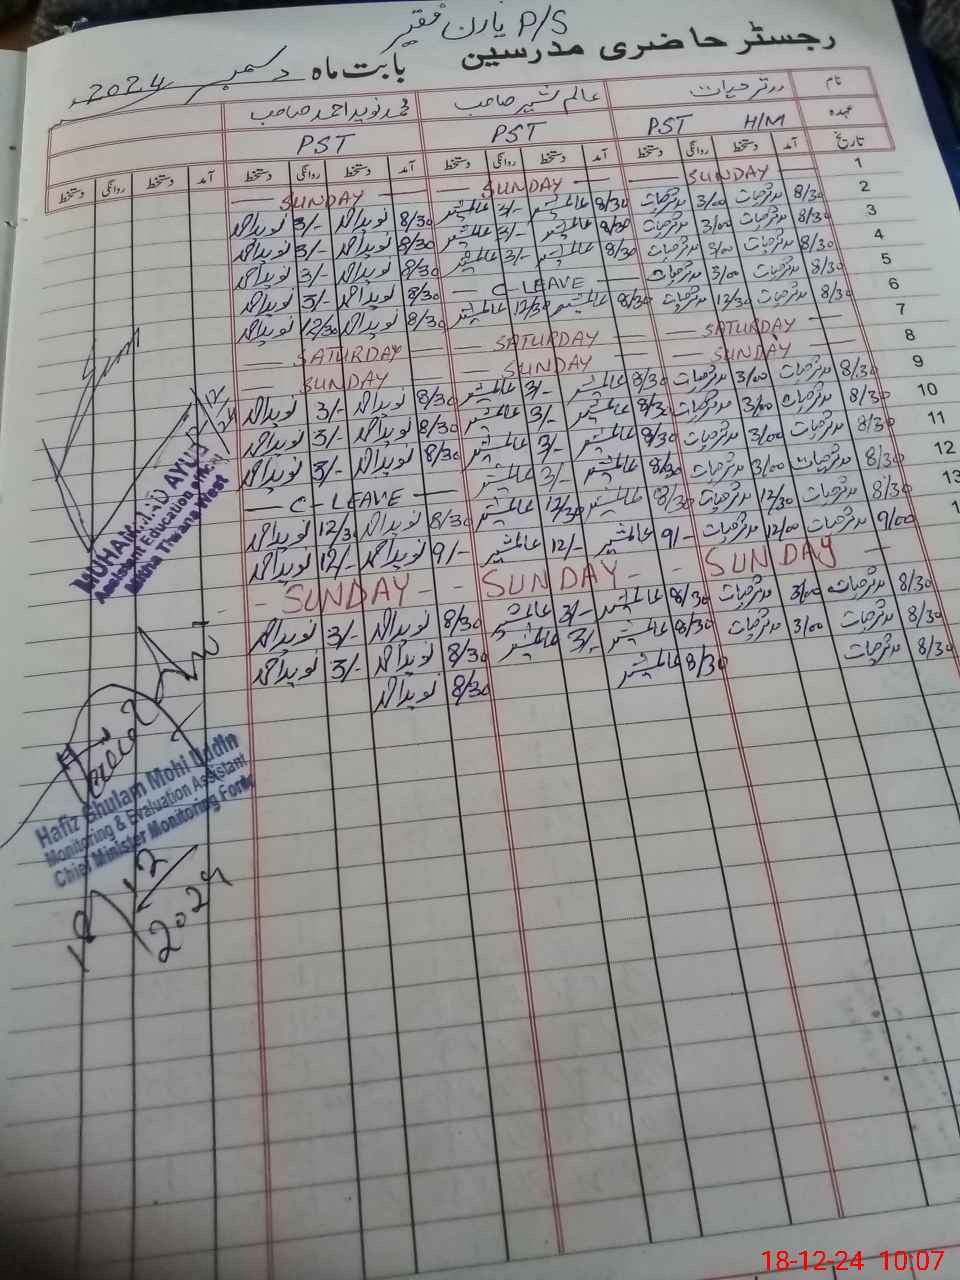 P/S یارن فقیر
رجسٹر حاضری مدرسین بابت ماہ دسمبر 2024
نام مدثر حیات عالم شیر صاحب محمد نوید احمد صاحب
عہدہ PST H/M PST PST
تاریخ آمد دستخط روانگی دستخط آمد دستخط روانگی دستخط آمد دستخط روانگی دستخط آمد دستخط روانگی دستخط
1 — SUNDAY — — SUNDAY — — SUNDAY —
2 8/30 مدثر حیات 3/00 مدثر حیات 8/30 عالم شیر 3/- عالم شیر 8/30 نوید احمد 3/- نوید احمد
3 8/30 مدثر حیات 3/00 مدثر حیات 8/30 عالم شیر 3/- عالم شیر 8/30 نوید احمد 3/- نوید احمد
4 8/30 مدثر حیات 3/00 مدثر حیات 8/30 عالم شیر 3/- عالم شیر 8/30 نوید احمد 3/- نوید احمد
5 8/30 مدثر حیات 3/00 مدثر حیات — C-LEAVE — 8/30 نوید احمد 3/- نوید احمد
6 8/30 مدثر حیات 12/30 مدثر حیات 8/30 عالم شیر 12/30 عالم شیر 8/30 نوید احمد 12/30 نوید احمد
7 — SATURDAY — — SATURDAY — — SATURDAY —
8 — SUNDAY — — SUNDAY — — SUNDAY —
9 8/30 مدثر حیات 3/00 مدثر حیات 8/30 عالم شیر 3/- عالم شیر 8/30 نوید احمد 3/- نوید احمد
10 8/30 مدثر حیات 3/00 مدثر حیات 8/30 عالم شیر 3/- عالم شیر 8/30 نوید احمد 3/- نوید احمد
11 8/30 مدثر حیات 3/00 مدثر حیات 8/30 عالم شیر 3/- عالم شیر 8/30 نوید احمد 3/- نوید احمد
12 8/30 مدثر حیات 3/00 مدثر حیات 8/30 عالم شیر 3/- عالم شیر — C-LEAVE —
13 8/30 مدثر حیات 12/30 مدثر حیات 8/30 عالم شیر 12/30 عالم شیر 8/30 نوید احمد 12/30 نوید احمد
1 9/00 مدثر حیات 12/00 مدثر حیات 9/- عالم شیر 12/- عالم شیر 9/- نوید احمد 12/- نوید احمد
SUNDAY — SUNDAY - - SUNDAY - -
8/30 مدثر حیات 3/00 مدثر حیات 8/30 عالم شیر 3/- عالم شیر 8/30 نوید احمد 3/- نوید احمد
8/30 مدثر حیات 3/00 مدثر حیات 8/30 عالم شیر 3/- عالم شیر 8/30 نوید احمد 3/- نوید احمد
8/30 مدثر حیات 8/30 عالم شیر 8/30 نوید احمد
MUHAMMAD AYUB
Assistant Education
Mitha Tiwana West
Hafiz Ghulam Mohi Uddin
Monitoring & Evaluation Assistant
Chief Minister Monitoring Force
18/12/2024
18-12-24 10:07